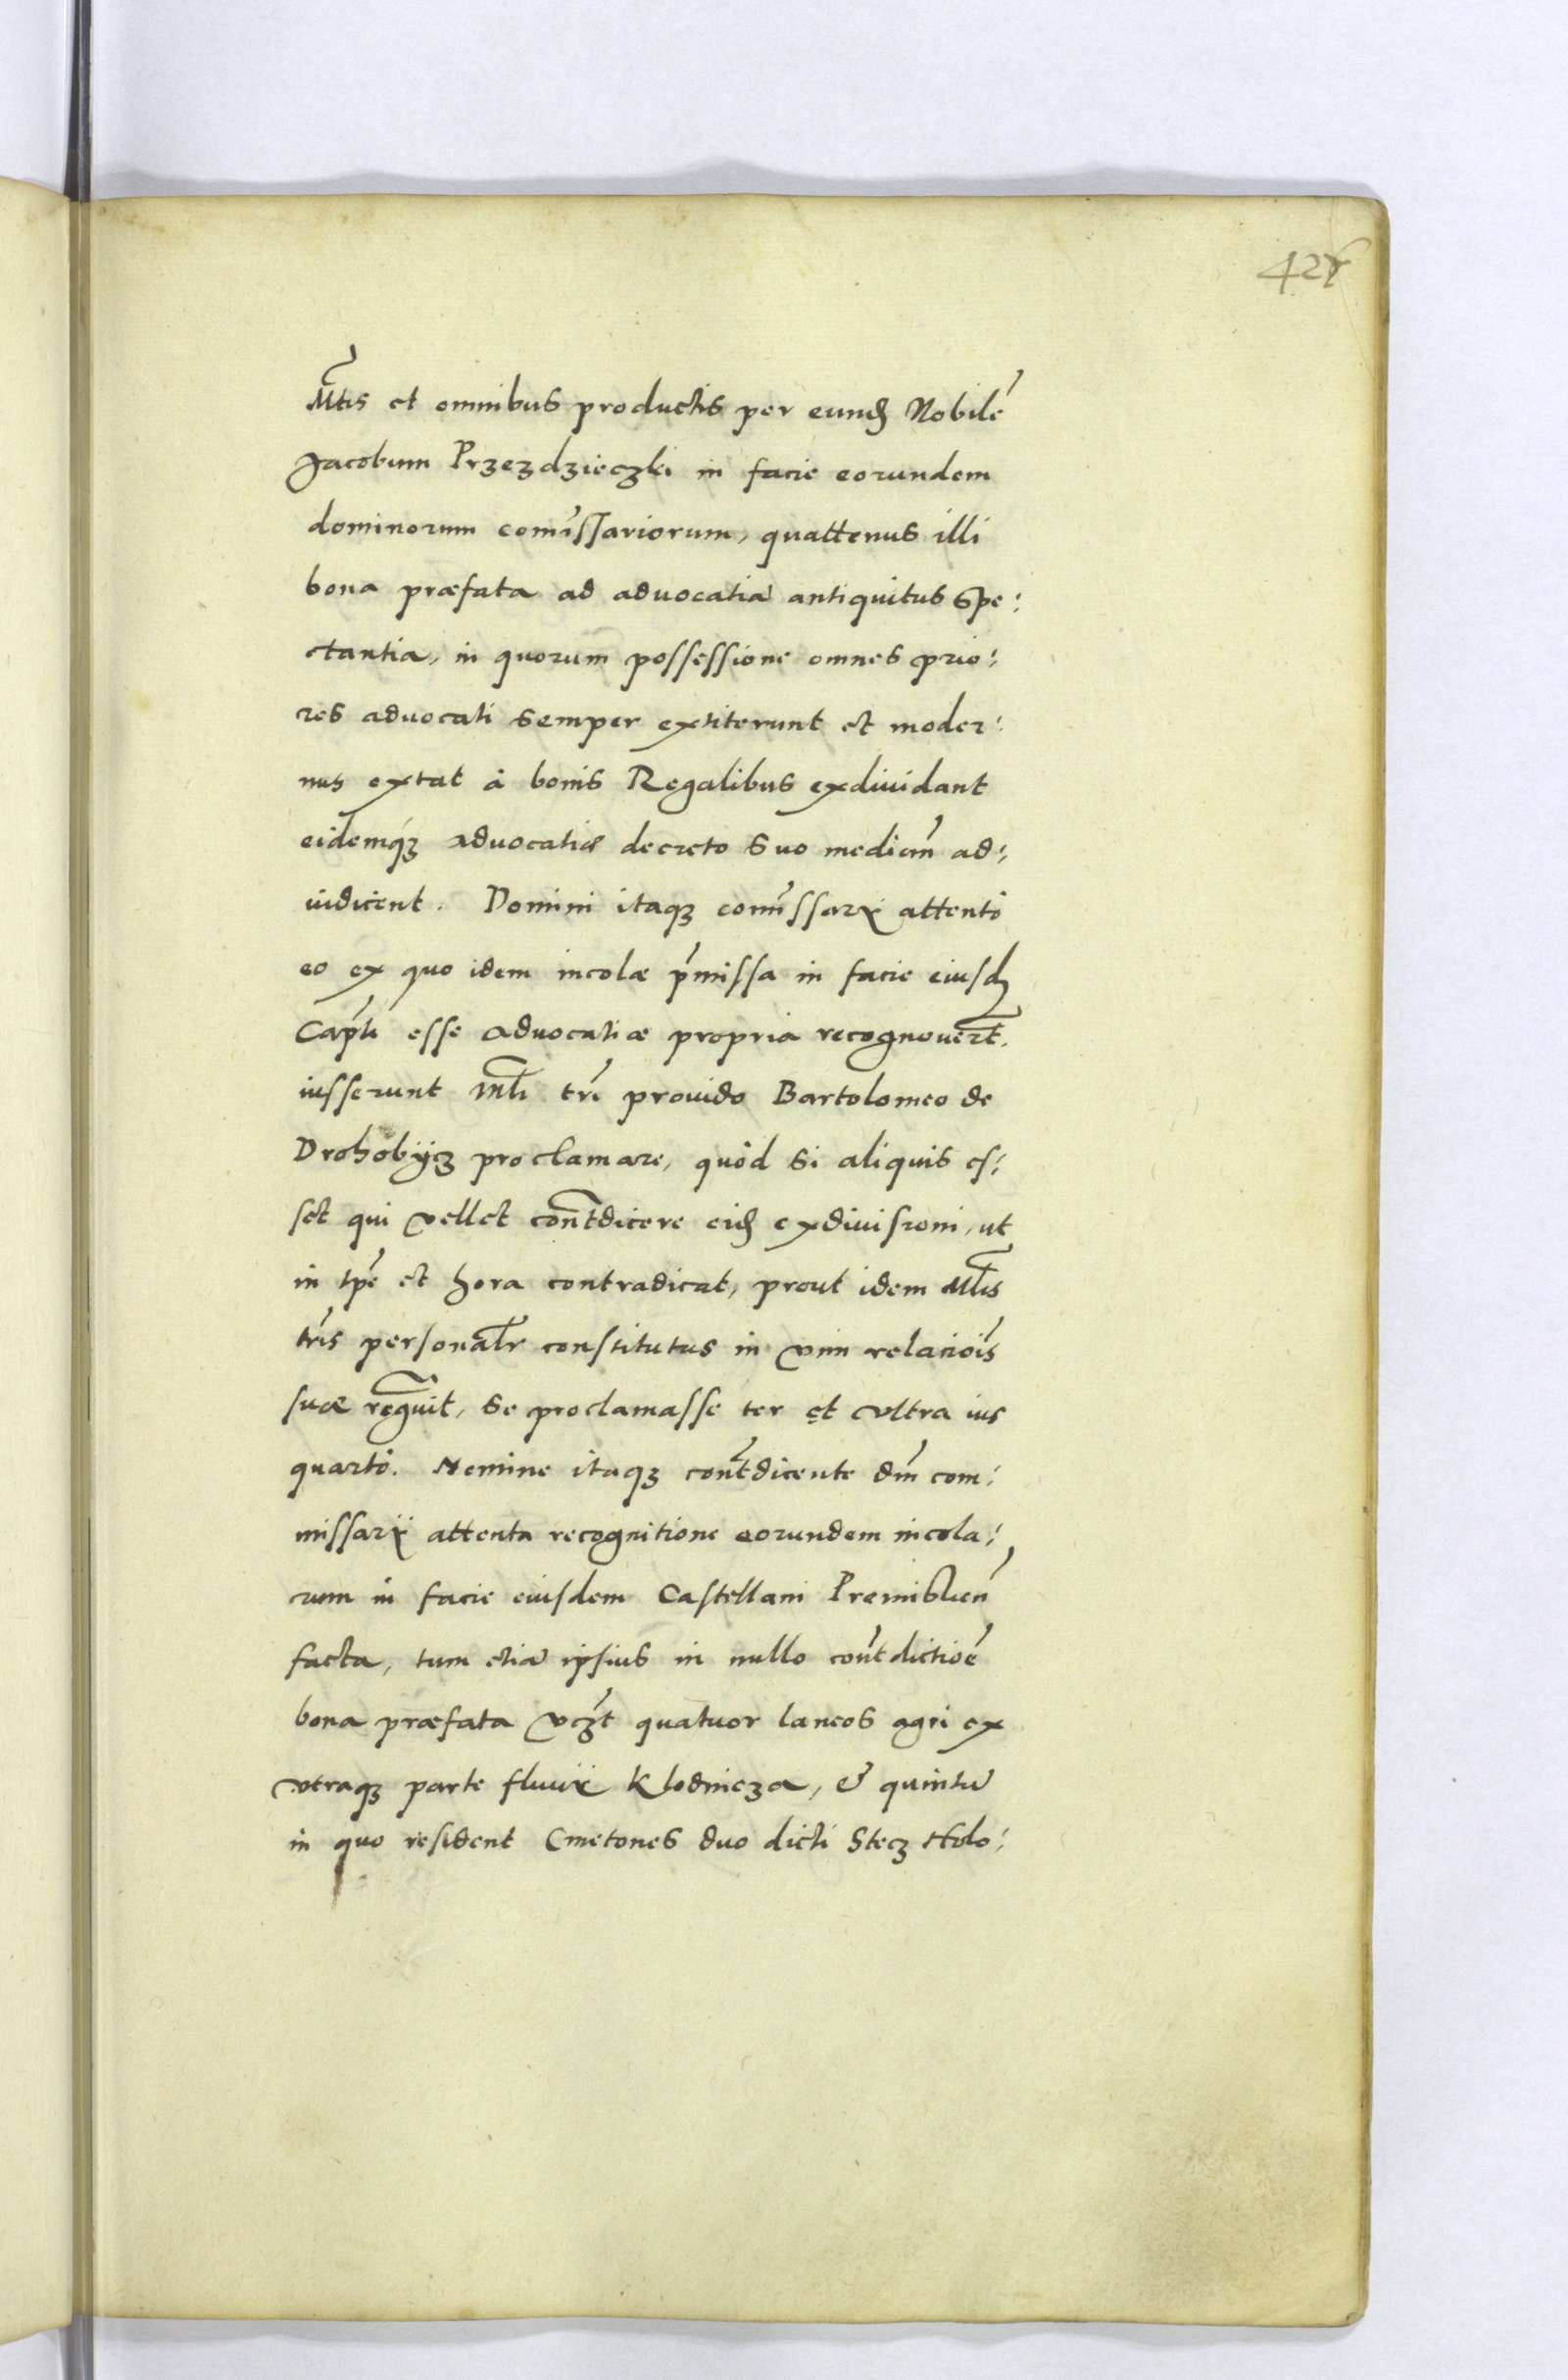 428
Mtis et omnibus productis per eund Nobilé
Jacobum Przezdzieczki in facie eorundem
dominorum comissariorum, quattenus illi
bona præfata ad advocatiã antiquitus spe:
ctantia, in quorum possessione omnes prio:
res advocati semper extiterunt et moder:
nus extat à bonis Regalibus exdiuidant
eidemq́ꝫ advocatiæ decreto suo median̄ ad:
iudicent. Domini itaqꝫ comissarij attento
eo ex quo idem incolæ p̄missa in facie eiusd
Capti esse advocatiæ propria recognouert̄.
iusserunt Mli tri prouido Bartolomeo de
Drohobÿcz proclamare, quòd si aliquis es:
set qui vellet cont̄dicere eid exdiuisioni, ut
in tpe et hora contradicat, prout idem Mlis
tris personalr constitutus in vim relaciois
suæ regnuit, se proclamasse ter et vltra ius
quartò. Nemine itaqꝫ cont̄dicente dm̄ com:
missarij attenta recognitione eorundem incola:
rum in facie eiusdem Castellani Premislien̄
facta, tum etiã ipsius in nullo cont̄dictioē
bona præfata vczt quatuor laneos agri ex
vtraqꝫ parte fluuij Klodnicza, & quintũ
in quo resident Cmetones duo dicti Stecz Holo: